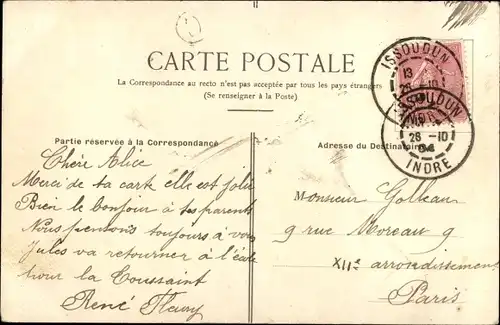 CARTE POSTALE
La Correspondance au recto n'est pas acceptée par tous les pays étrangers
(Se renseigner à la Poste)
Partie réservée à la Correspondance
Chère Alice
Merci de ta carte elle est joli
Bien le bonjour à tes parents
Nous pensons toujours à vous
Jules va retourner à l'école
pour la Toussaint
René Fleury
Adresse du Destinataire
Monsieur
9 rue Moreau 9
XIIe arrondissement
Paris
ISSOUDUN
13
26 -10
ISSOUDUN
26 -10
04
INDRE